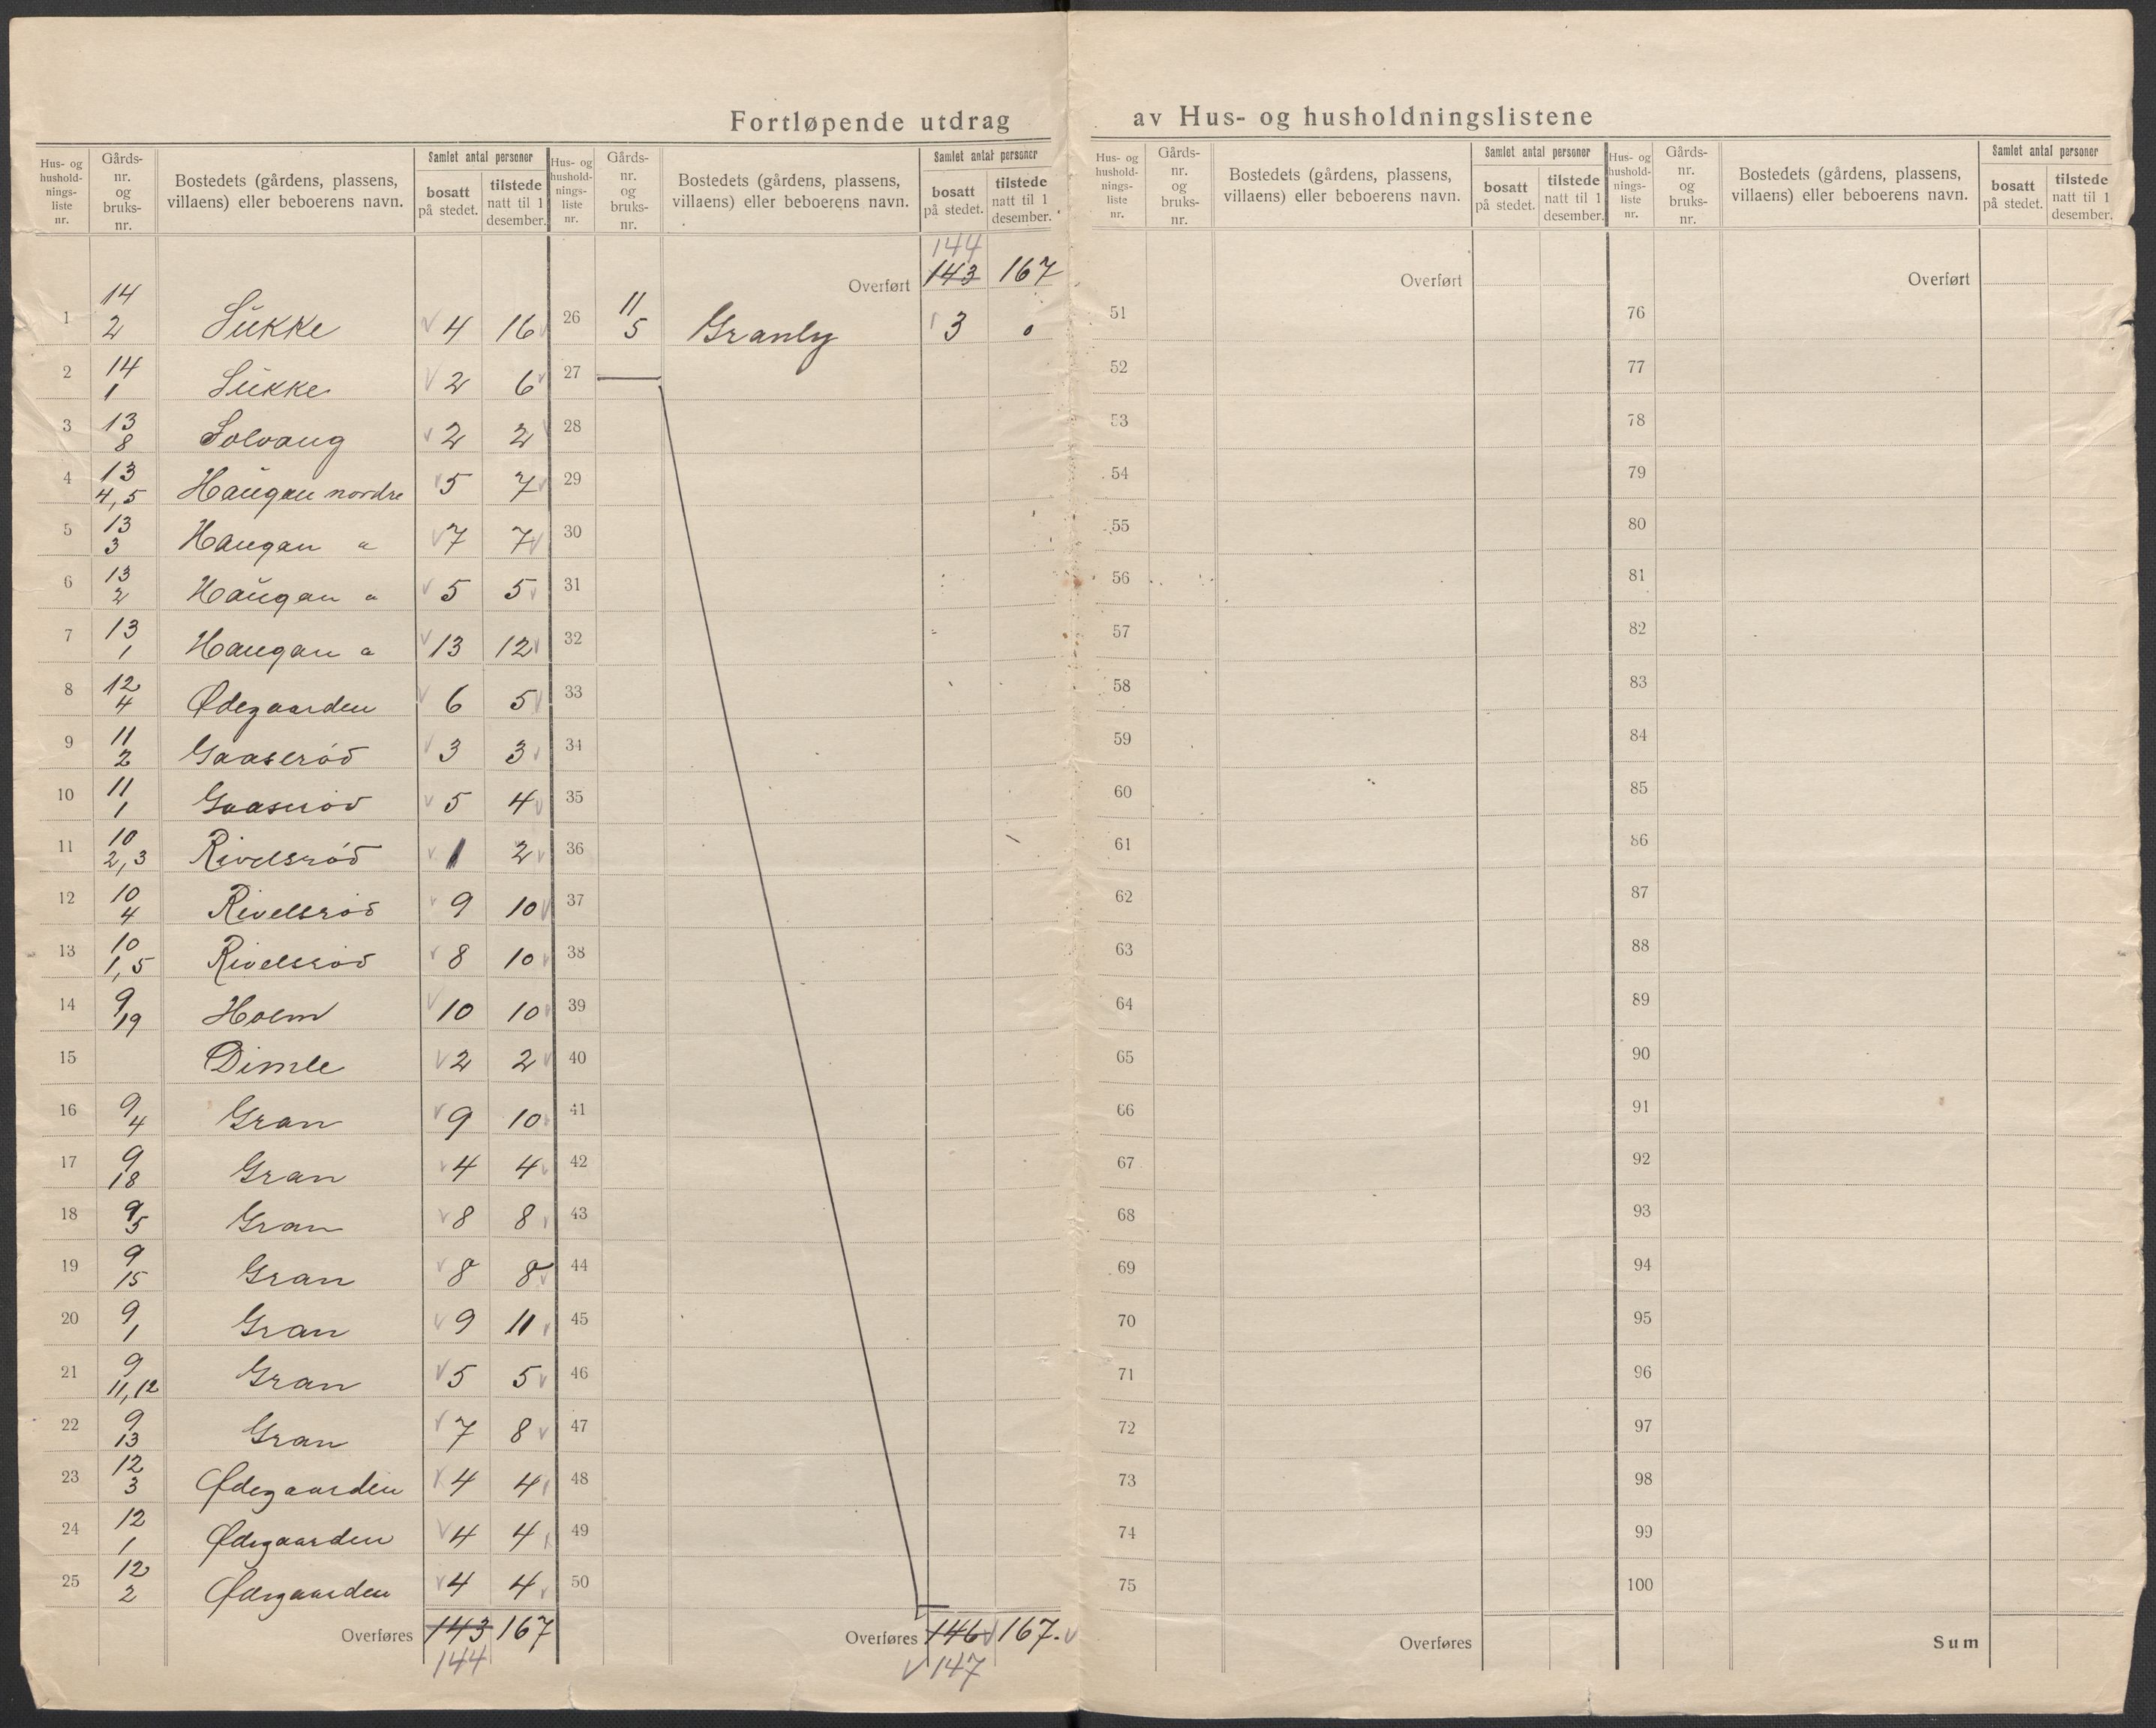 Fortløpende utdrag av Hus- og husholdningslistene
Hus- og hushold-nings-liste nr. | Gårds-nr. og bruks-nr. | Bostedets (gårdens, plassens, villaens) eller beboerens navn. | Samlet antal personer | bosatt på stedet. | tilstede natt til 1 desember.
1 14 2 Sukke 4 16
2 14 1 Sukke 2 6
3 13 8 Solvang 2 2
4 13 4,5 Haugan nordre 5 7
5 13 3 Haugan " 7 7
6 13 2 Haugan " 5 5
7 13 1 Haugan " 13 12
8 12 4 Ødegaarden 6 5
9 11 2 Gaaserød 3 3
10 11 1 Gaaserød 5 4
11 10 2,3 Rivelsrød 1 2
12 10 4 Rivelsrød 9 10
13 10 1,5 Rivelsrød 8 10
14 9 19 Holm 10 10
15 Dimle 2 2
16 9 4 Gran 9 10
17 9 18 Gran 4 4
18 9 5 Gran 8 8
19 9 15 Gran 8 8
20 9 1 Gran 9 11
21 9 11,12 Gran 5 5
22 9 13 Gran 7 8
23 12 3 Ødegaarden 4 4
24 12 1 Ødegaarden 4 4
25 12 2 Ødegaarden 4 4
Overføres 143 167
144
Hus- og hushold-nings-liste nr. | Gårds-nr. og bruks-nr. | Bostedets (gårdens, plassens, villaens) eller beboerens navn. | Samlet antal personer | bosatt på stedet. | tilstede natt til 1 desember.
144
Overført 143 167
26 11 5 Granly 3 0
27
28
29
30
31
32
33
34
35
36
37
38
39
40
41
42
43
44
45
46
47
48
49
50
Overføres 146 167.
147
Hus- og hushold-nings-liste nr. | Gårds-nr. og bruks-nr. | Bostedets (gårdens, plassens, villaens) eller beboerens navn. | Samlet antal personer | bosatt på stedet. | tilstede natt til 1 desember.
Overført
51
52
53
54
55
56
57
58
59
60
61
62
63
64
65
66
67
68
69
70
71
72
73
74
75
Overføres
Hus- og hushold-nings-liste nr. | Gårds-nr. og bruks-nr. | Bostedets (gårdens, plassens, villaens) eller beboerens navn. | Samlet antal personer | bosatt på stedet. | tilstede natt til 1 desember.
Overført
76
77
78
79
80
81
82
83
84
85
86
87
88
89
90
91
92
93
94
95
96
97
98
99
100
Sum